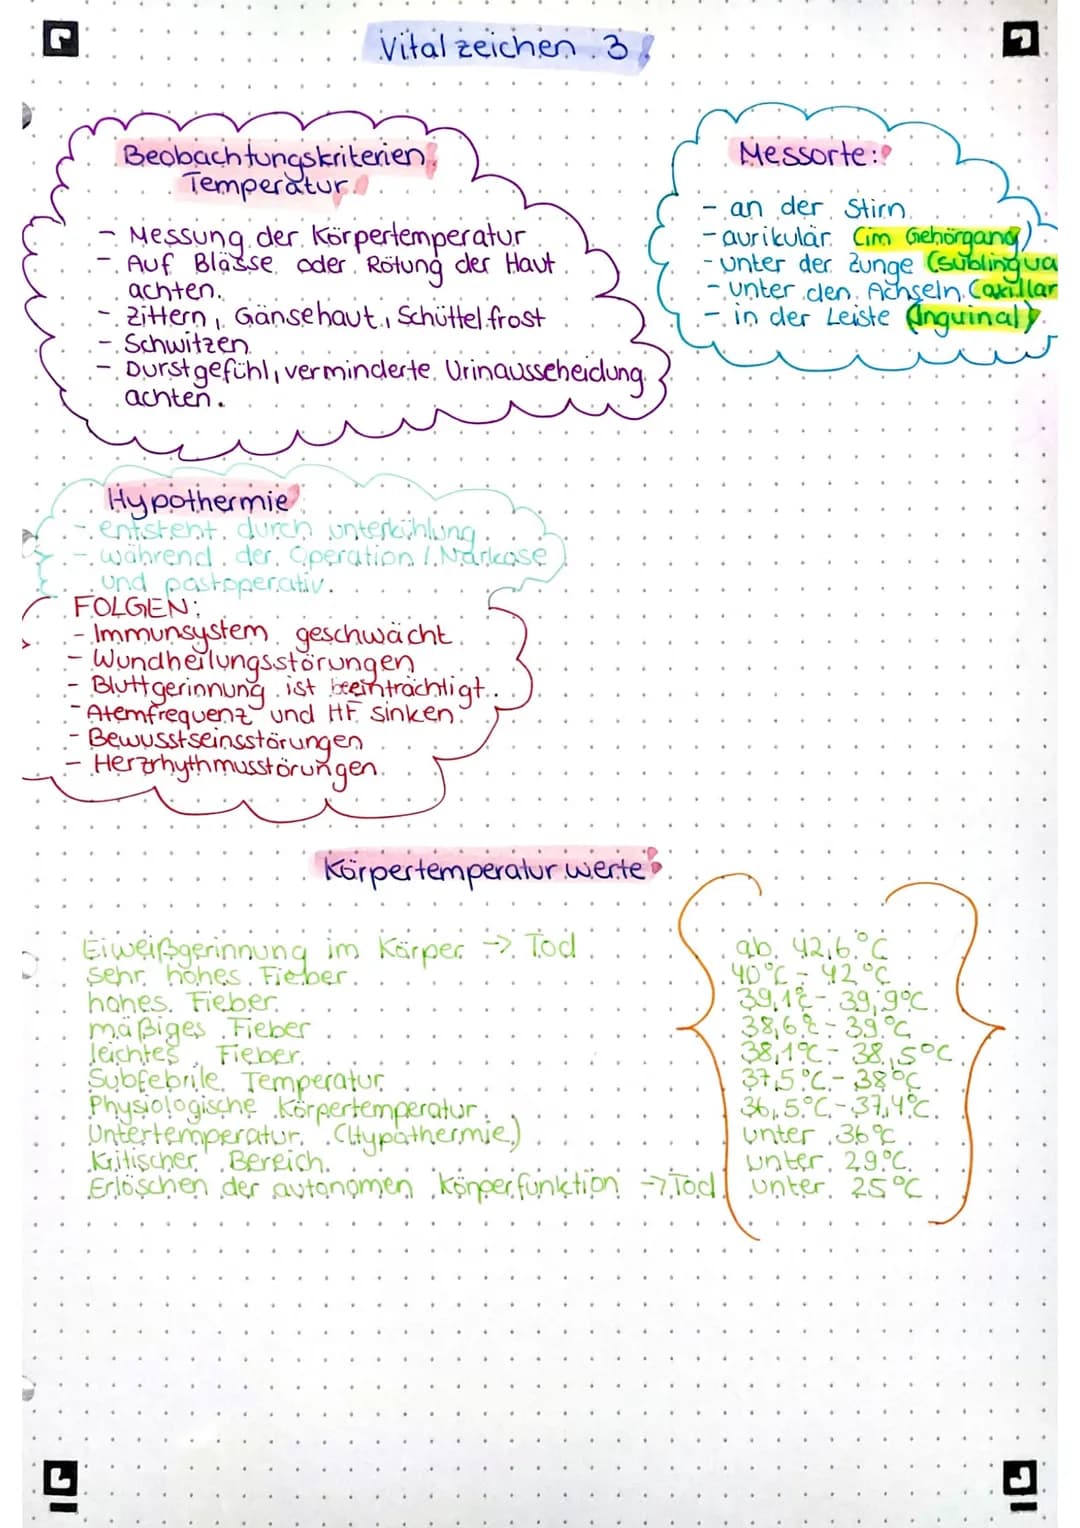 Vitalzeichen 3
Beobachtungskriterien
Temperatur
- Messung der Körpertemperatur
- Auf Blässe oder Rötung der Haut
achten.
- Zittern, Gänsehaut, Schüttelfrost
- Schwitzen
- Durstgefühl, verminderte Urinausscheidung
achten.
Messorte:
- an der Stirn
- aurikulär (im Gehörgang)
- unter der Zunge (sublingua
- unter den Achseln (axillar
- in der Leiste (Inguinal)
Hypothermie
- entsteht durch unterkühlung
- während der Operation / Narkose
und pastoperativ.
FOLGEN:
- Immunsystem geschwächt
- Wundheilungsstörungen
- Bluttgerinnung ist beeinträchtigt.
- Atemfrequenz und HF sinken.
- Bewusstseinsstörungen
- Herzrhythmusstörungen.
Körpertemperatur werte
Eiweißgerinnung im Körper -> Tod ab 42,6°C
Sehr hohes Fieber. 40°C - 42°C
hohes Fieber. 39,1°C - 39,9°C
mäßiges Fieber 38,6°C - 39°C
leichtes Fieber. 38,1°C - 38,5°C
Subfebrile Temperatur 37,5°C - 38°C
Physiologische Körpertemperatur 36,5°C - 37,4°C
Untertemperatur (Hypothermie) unter 36°C
Kritischer Bereich. unter 29°C
Erlöschen der autonomen Körperfunktion -> Tod unter 25°C